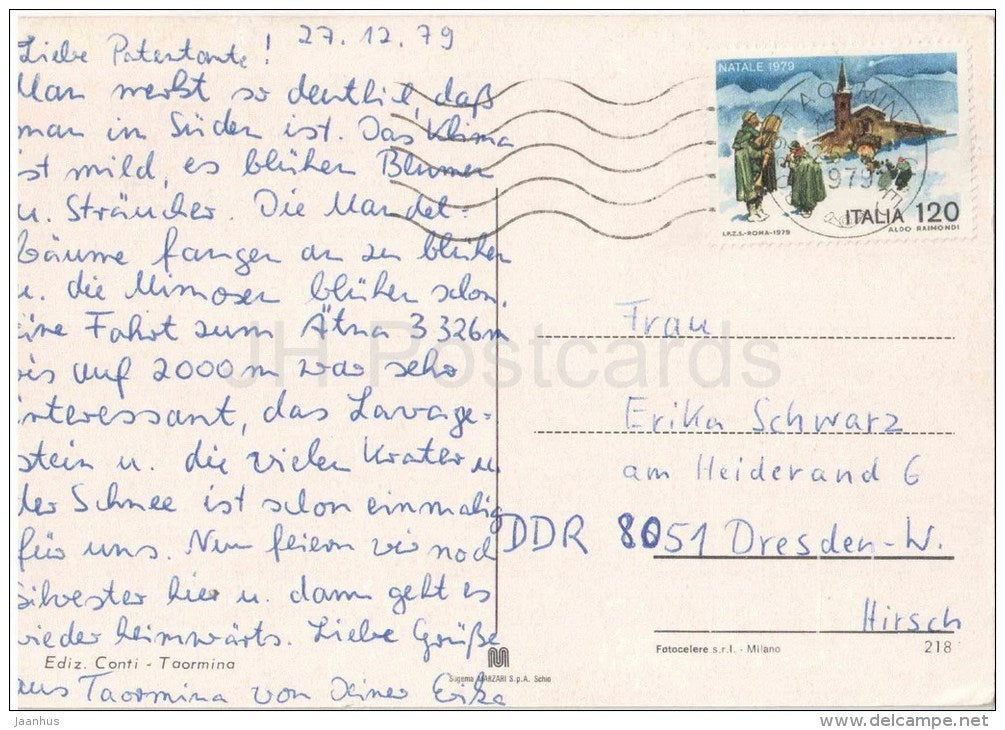 27.12.79
Liebe Patentante!
Man merkt so deutlich, daß
man im Süden ist. Das Klima
ist mild, es blühen Blumen
u. Sträucher. Die Mandel=
bäume fangen an zu blühen
u. die Mimosen blühen schon.
ine Fahrt zum Ätna 3326m
bis auf 2000m war sehr
interessant, das Lavage=
stein u. die vielen Krater u.
der Schnee ist schon einmalig
für uns. Nun feiern wir noch
Silvester hier u. dann geht es
wieder heimwärts. Liebe Grüße
aus Taormina von Deiner
NATALE 1979
ITALIA 120
I.P.Z.S.-ROMA-1979
ALDO RAIMONDI
TAORMINA
1979
Frau
Erika Schwarz
am Heiderand 6
DDR 8051 Dresden-W.
Hirsch
Ediz. Conti - Taormina
Sugenia MARZARI S.p.A. Schio
Fotocelere s.r.l. - Milano
218
JH Postcards
Jaanhus
www.delcampe.net